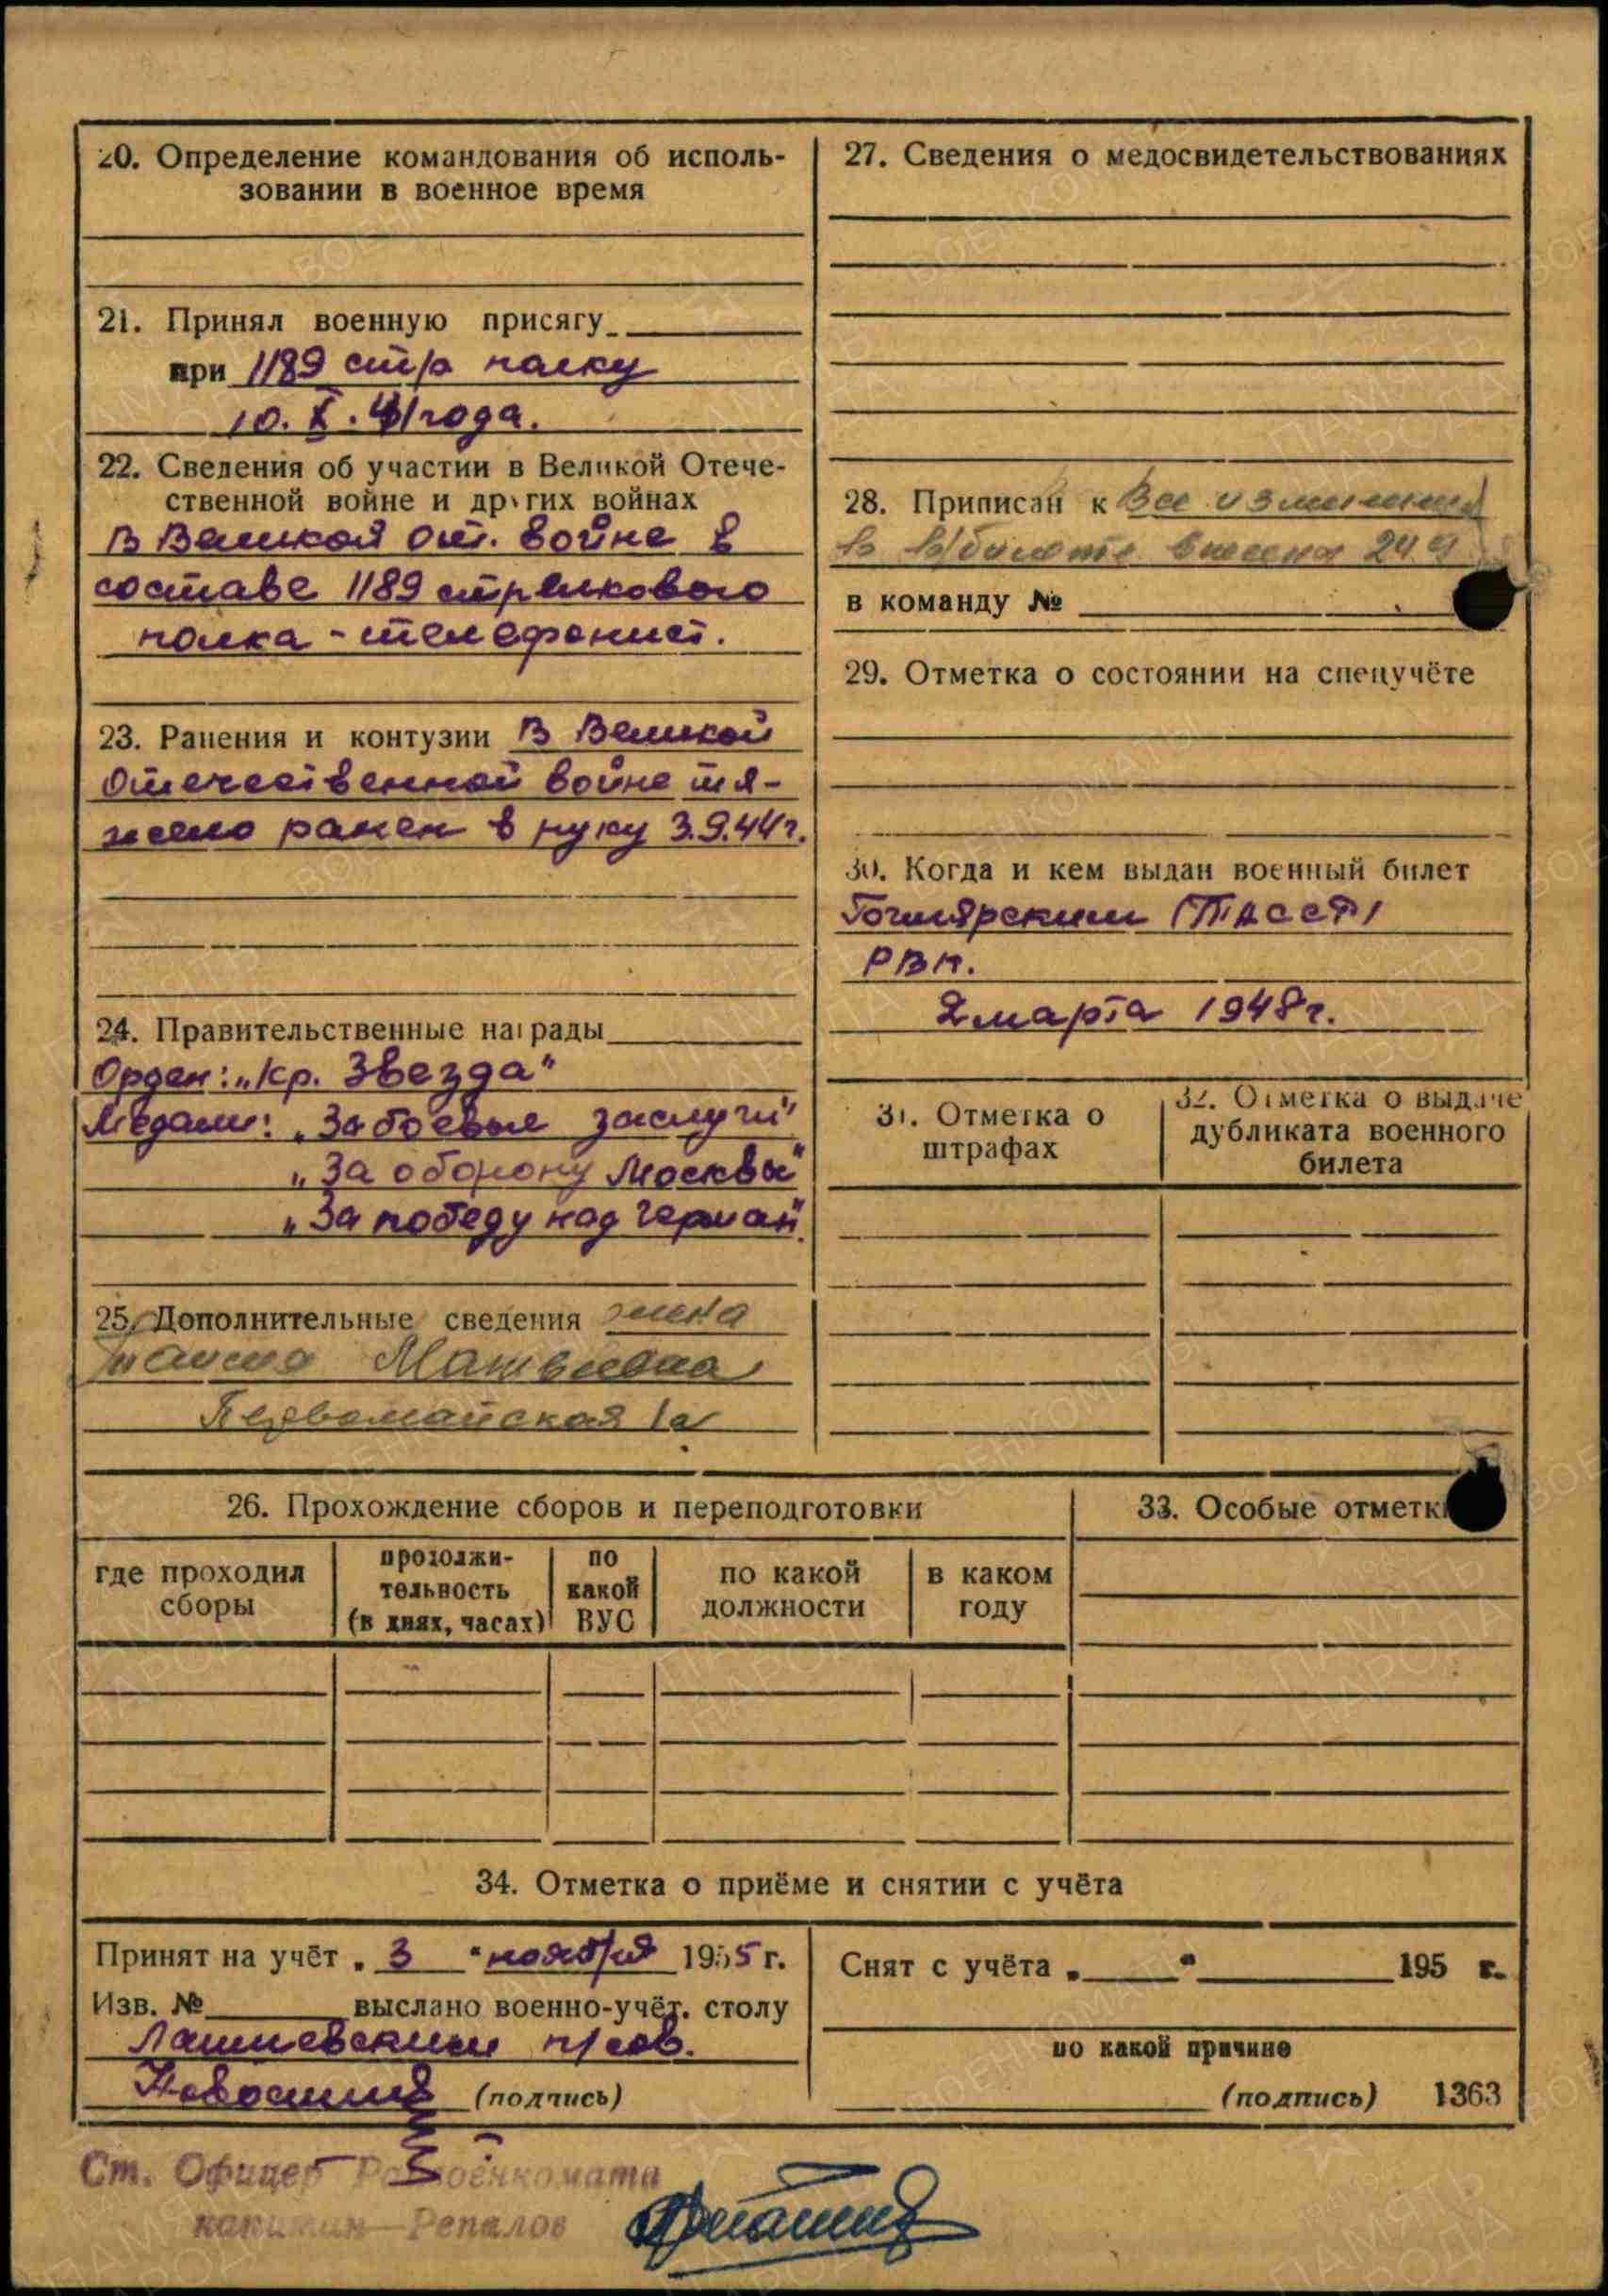 20. Определение командования об исполь-
зовании в военное время
21. Принял военную присягу
при 1189 стр полку
10. X. 41 года.
22. Сведения об участии в Великой Отече-
ственной войне и других войнах
В Великой от. войне в
составе 1189 стрелкового
полка - телефонист.
23. Ранения и контузии В Великой
Отечественной войне тя-
жело ранен в руку 3.9.44г.
24. Правительственные награды
Орден: „Кр. Звезда“
Медали: „За боевые заслуги“
„За оборону Москвы“
„За победу над Герман“
25. Дополнительные сведения жена
Матвеевна
Первомайская 1а
27. Сведения о медосвидетельствованиях
28. Приписан к Все изменения
в в/билете внесены 24.9
в команду №
29. Отметка о состоянии на спецучёте
30. Когда и кем выдан военный билет
(ТАССР)
РВК.
2 марта 1948г.
31. Отметка о
штрафах
32. Отметка о выдаче
дубликата военного
билета
26. Прохождение сборов и переподготовки
где проходил
сборы
продолжи-
тельность
(в днях, часах)
по
какой
ВУС
по какой
должности
в каком
году
33. Особые отметки
34. Отметка о приёме и снятии с учёта
Принят на учёт „ 3 “ ноября 1955 г.
Изв. № выслано военно-учёт. столу
Лаишевским п/сов.
(подпись)
Снят с учёта „ “ 195 г.
по какой причине
(подпись) 1363
Ст. Офицер Райвоенкомата
капитан Репалов
ПАМЯТЬ
НАРОДА
ВОЕНКОМАТЫ